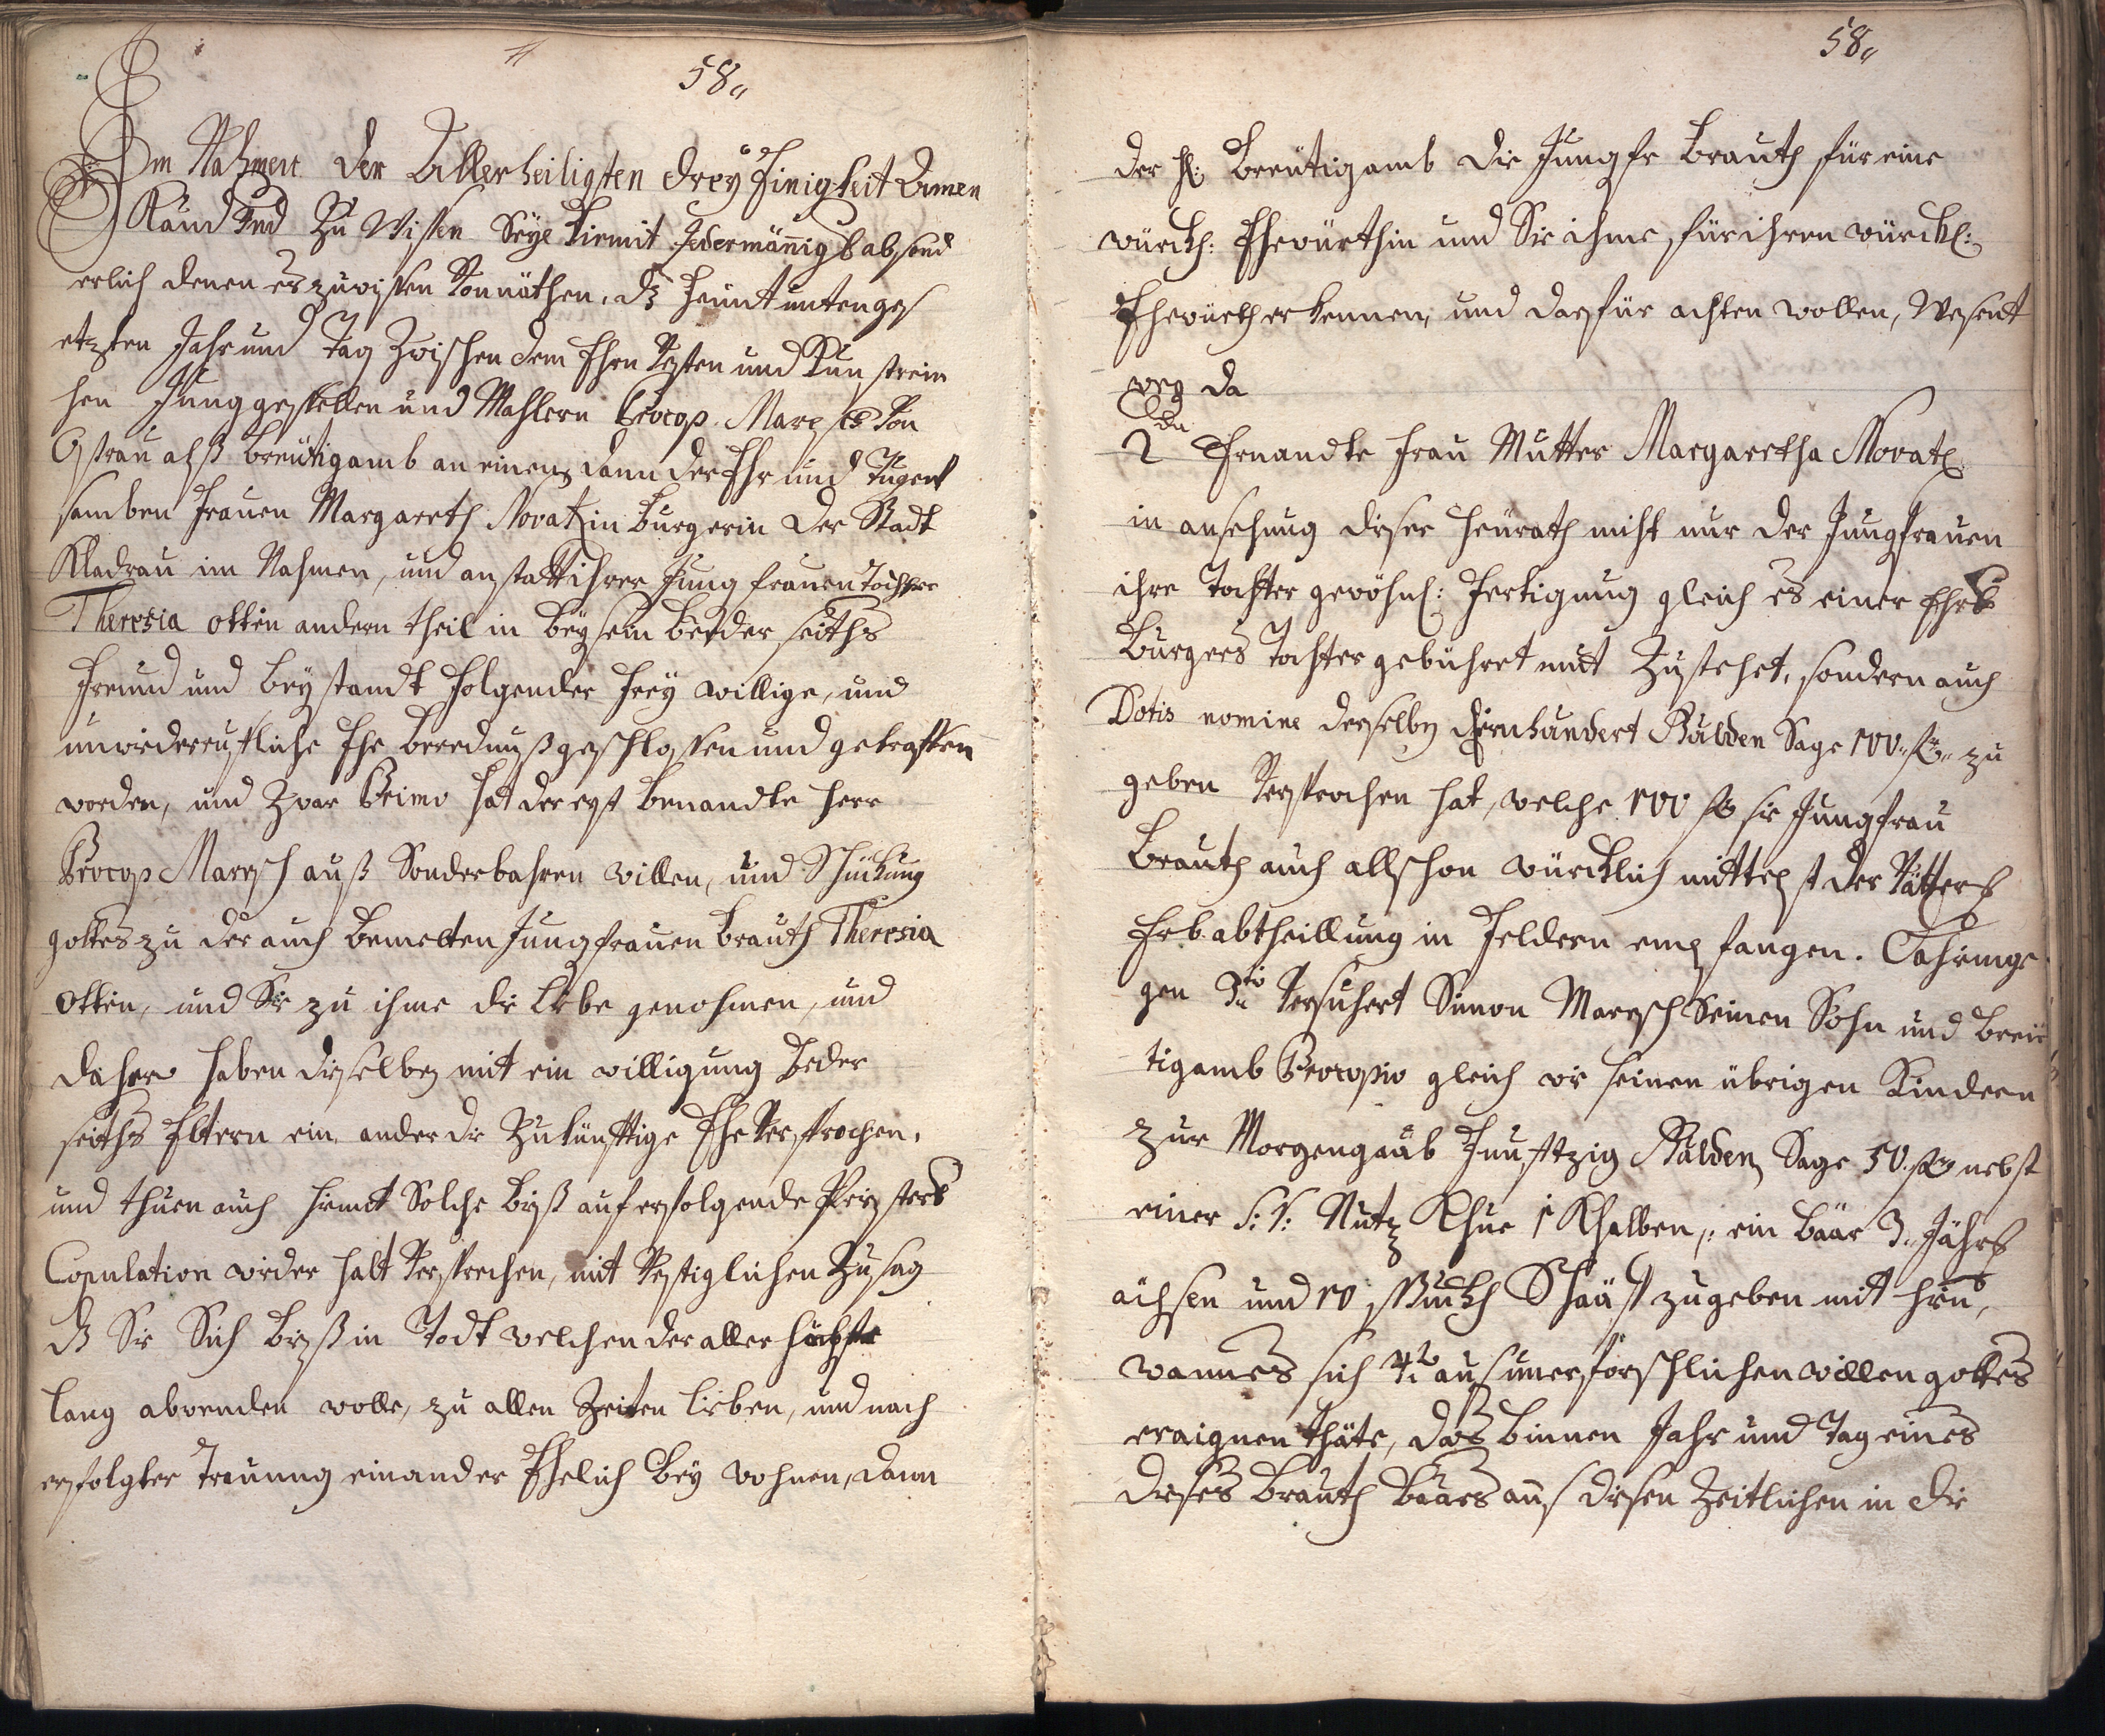 58„
Im Nahmen der Allerheiligsten dreÿ Einigkeit Amen
Kund Und Zu Wissen Seÿe hiemit Jedermäñigl absond
erlich denen es zuwissen Vonnöthen, dz heunt untenges
etzten Jahr und Tag Zwischen dem Ehrn Vesten und Kunstrein
hen Junggesellen und Mahlern Procop Maresch Von
Ostrau alß breütigamb an einem, dann der Ehr und Tugent
samben Frauen Margareth Novakin burgerin der Stadt
Kladrau im Nahmen, und anstatt ihrer Jungfrauen Tochter
Theresia Ottin andern theil in beÿsein beÿder seiths
Freund und beÿstandt folgender freÿ willige, und
unwiderrufliche Ehe berednuß geschlossen und getroffen
worden, und Zwar Primo hat der erst benandte Herr
Procop Maresch auß Sonderbahren willen, und Schickung
gottes zu der auch bemelten Jungfrauen brauth Theresia
Ottin, und Sie zu ihme die Liebe genohmen, und
dahero haben dieselben mit ein willigung beder
seiths Eltern ein ander die Zukünfftige Ehe Versprochen,
und thuen auch hiemit Solche biß auf erfolgende Priesterl
Copulation wider halt Versprechen, mit Vestiglichen Zusag
dz Sie Sich biß in Todt welchen der aller höchste
lang abwenden wolle, zu allen Zeiten lieben, und nach
erfolgter Trauung einander Ehelich beÿ wohnen, dann
58„
der H: breütigamb die Jungfr brauth für eine
würckl: Ehewürthin und Sie ihme für ihren würckl:
Ehewürth erkennen, und dafür achten wollen, Wesent
weg da
2do Ernandte Frau Mutter Margaretha Novak
in ansehung dieser heürath nicht nur der Jungfrauen
ihre Tochter gewöhnl: Fertigung gleich es einer Ehrl
burgers Tochter gebühret und Zustehet, sondern auch
Dotis nomine derselben Einhundert Gulden Sage 100„ fl„ zu
geben Versprochen hat, welche 100 fl sie Jungfrau
brauth auch allschon würcklich mittelst der Vätterl
Erbabtheillung in Feldern empfangen. Dahinge
gen 3tio Versichert Simon Maresch Seinen Sohn und breü
tigamb Procopio gleich wie seinen übrigen Kindern
zur Morgengaab Funfftzig Gulden Sage 50. fl nebst
einer S: V: Nutz Khue 1 Khalben, ein baar 3. Jährl
ächsen und 10 Stuckh Schaaff zugeben mit hin,
wann es sich 4to aus unerforschlichen willen gottes
eraignen thäte, das binnen Jahr und Tag eines
dieses brauth baares aus diesen Zeitlichen in die